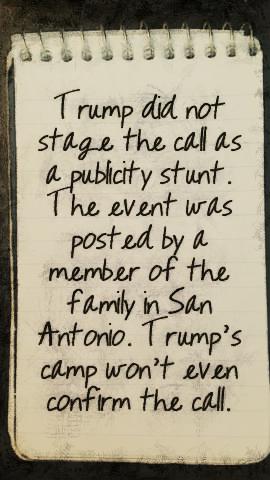 Trump did not
stage the call as
a publicity stunt.
The event was
posted by a
member of the
family in San
Antonio. Trump's
camp won't even
confirm the call.